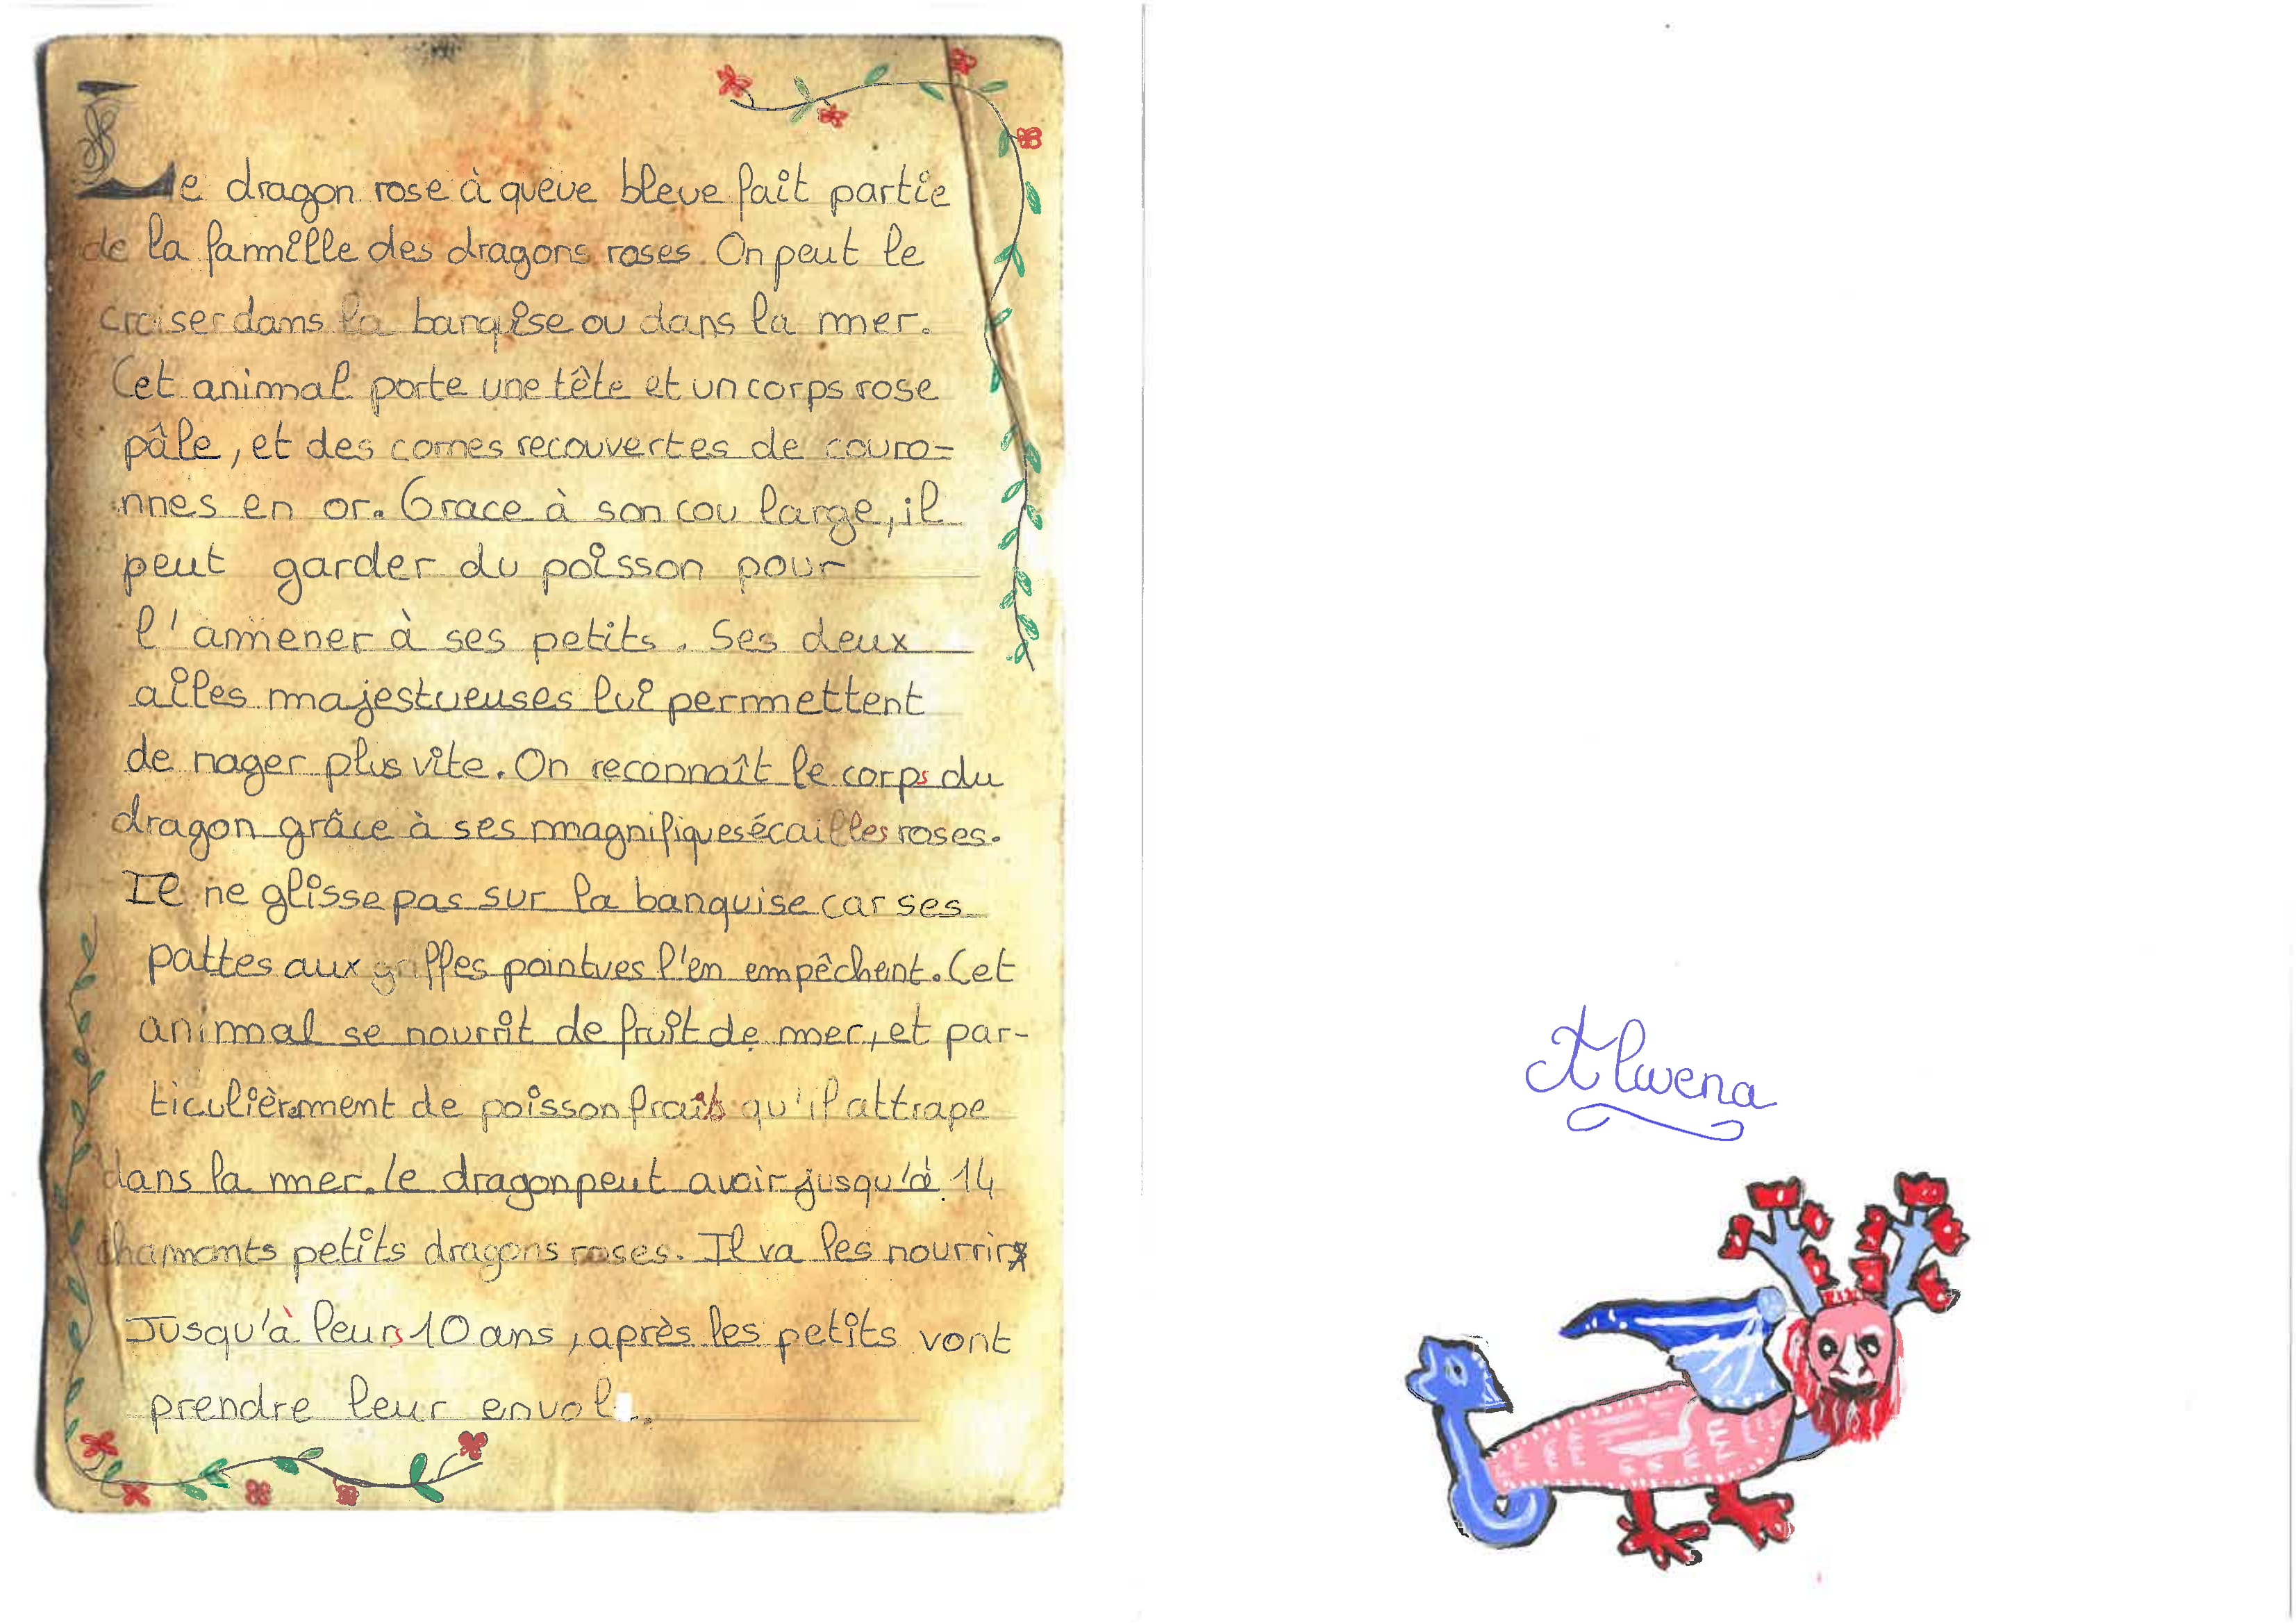 Le dragon rose à queue bleue fait partie
de la famille des dragons roses. On peut le
croiser dans la banquise ou dans la mer.
Cet animal porte une tête et un corps rose
pâle, et des cornes recouvertes de couro-
nnes en or. Grace à son cou large, il
peut garder du poisson pour
l'amener à ses petits. Ses deux
ailes majestueuses lui permettent
de nager plus vite. On reconnaît le corps du
dragon grâce à ses magnifiques écailles roses.
Il ne glisse pas sur la banquise car ses
pattes aux griffes pointues l'en empêchent. Cet
animal se nourrit de fruit de mer, et par-
ticulièrement de poisson frais qu'il attrape
dans la mer. Le dragon peut avoir jusqu'à 14
charmants petits dragons roses. Il va les nourrir
Jusqu'à leurs 10 ans, après les petits vont
prendre leur envol.
Alwena